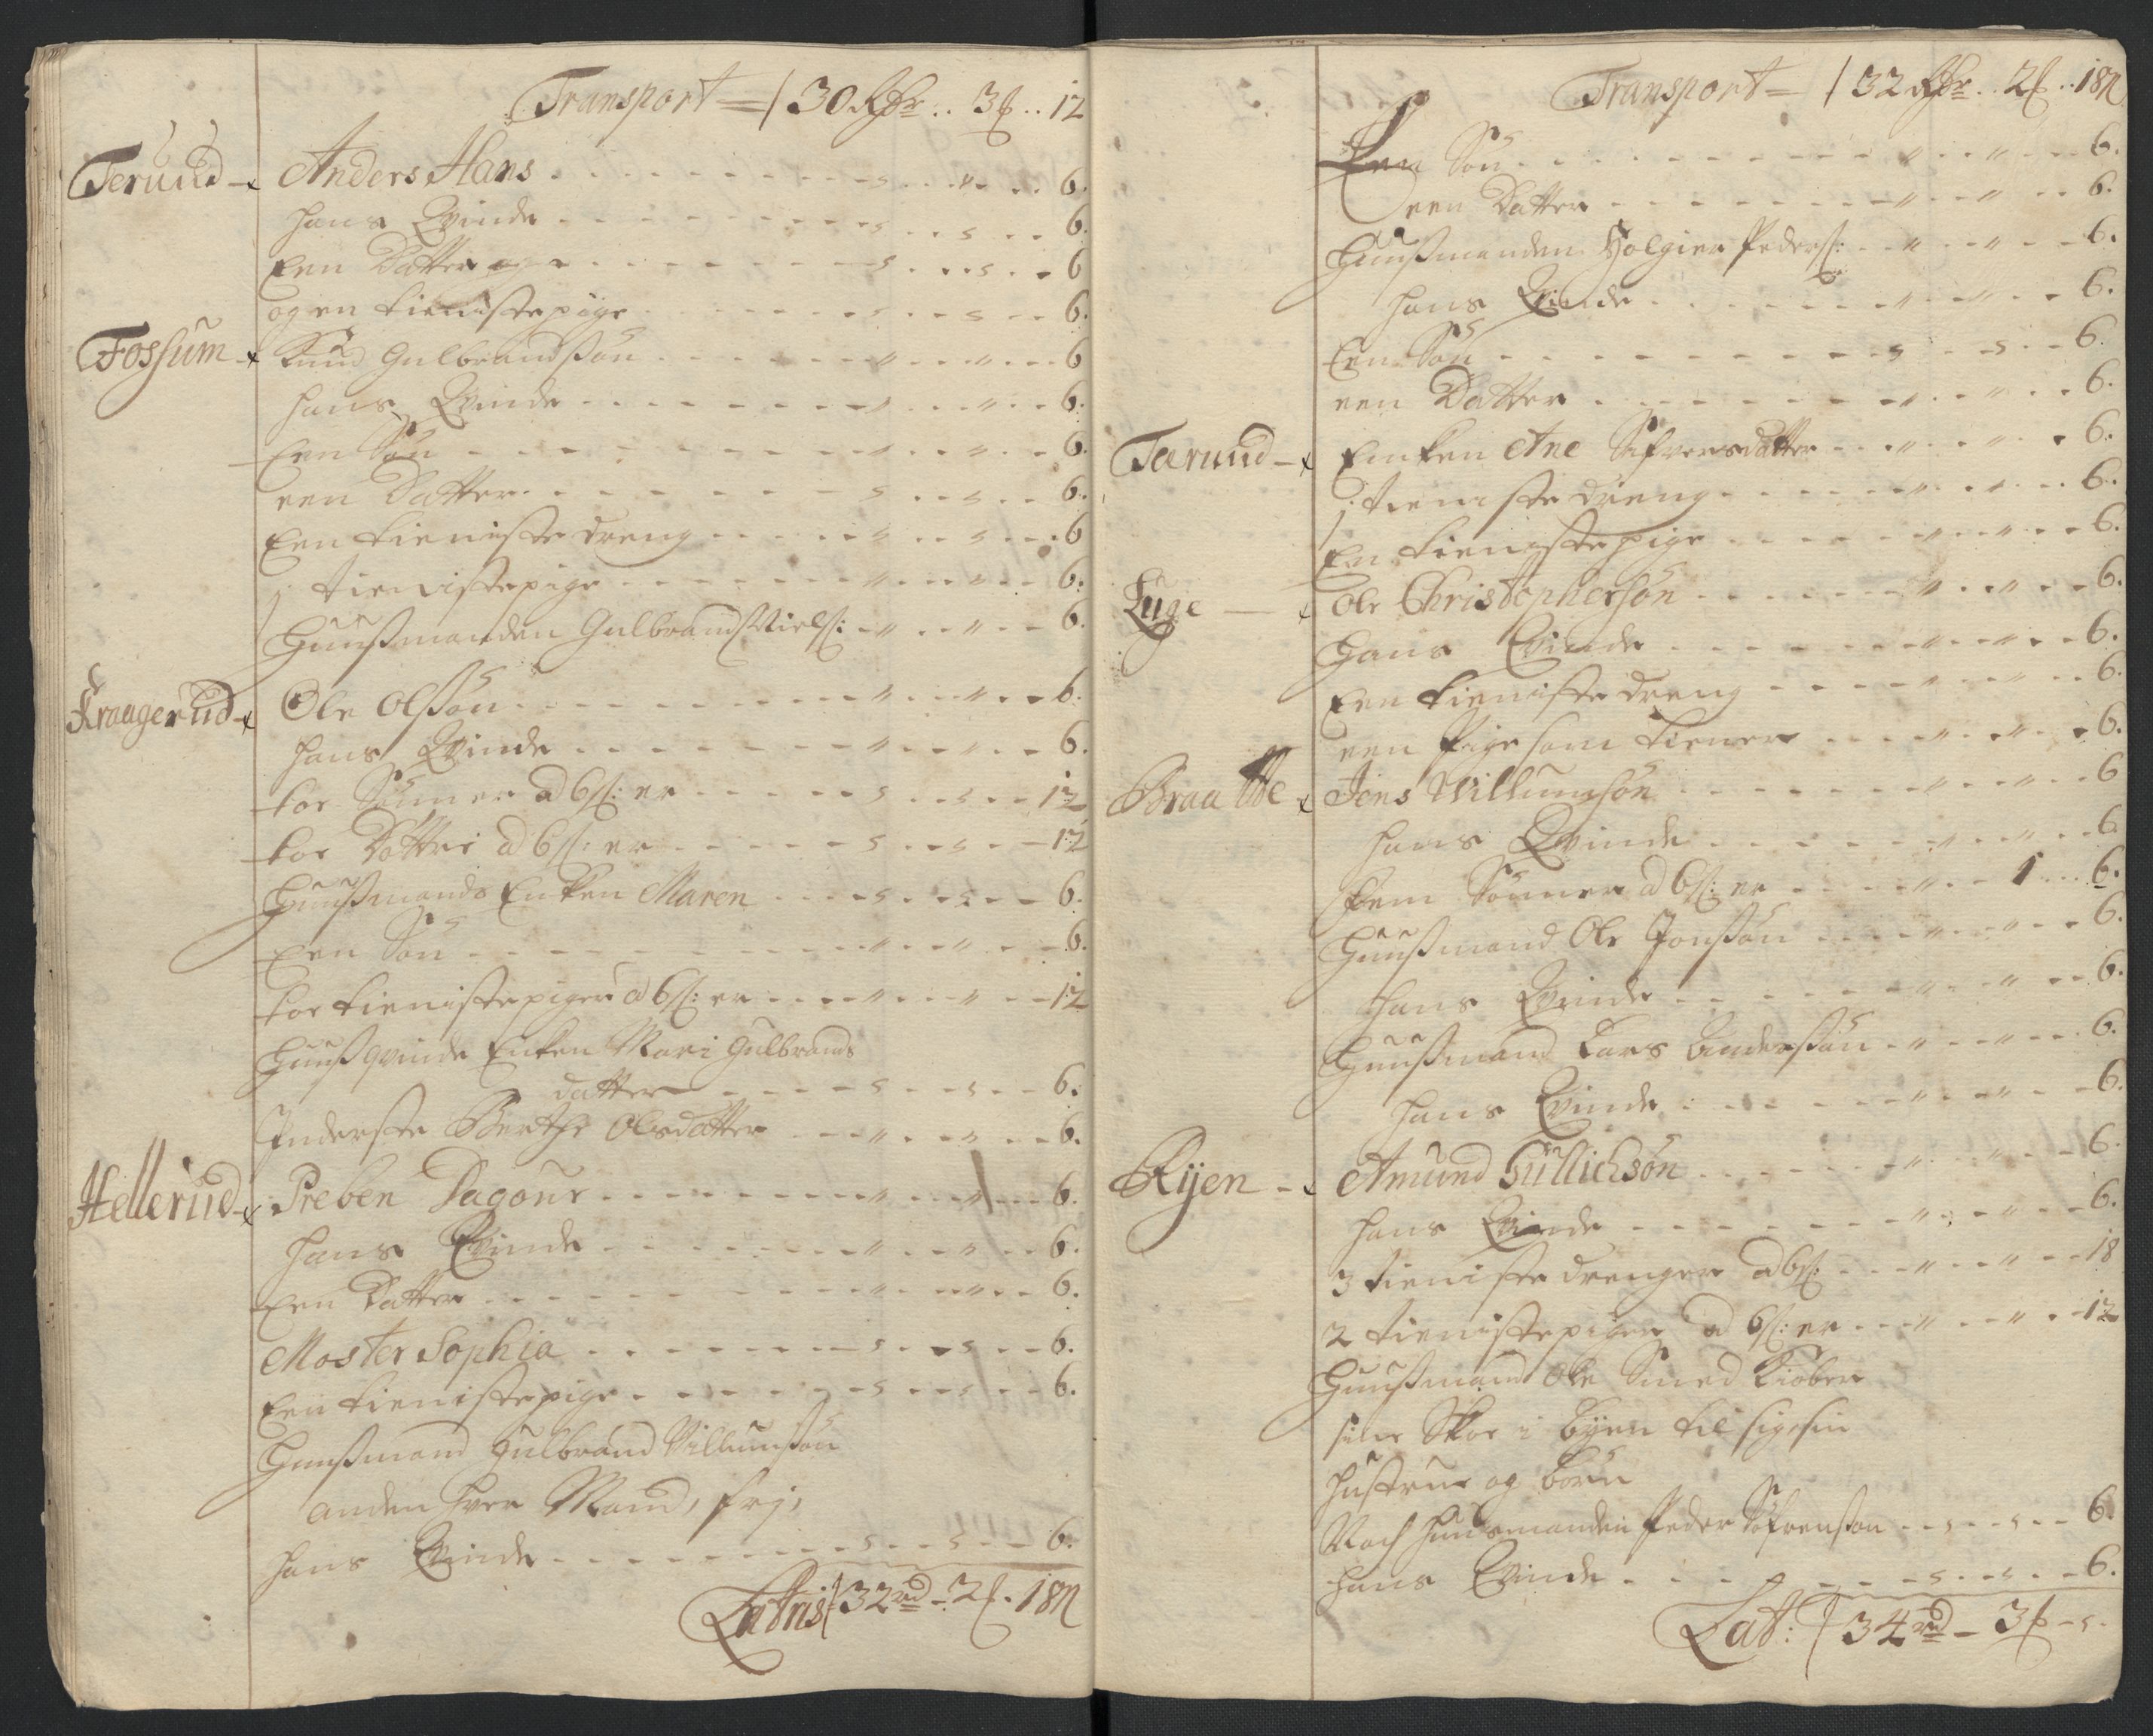 Transport = 30 Rdr .. 3 ß .. 12
Terüüd - Anders Hans . . . 6.
hans Qvinde . . . 6.
Een Datter og . . . 6
og en tienistepige . . . 6.
Fossum - Knud Gulbrandsøn . . . 6
hans Qvinde . . . 6.
Een Søn . . . 6.
een Datter . . . 6.
Een tieniste dreng . . . 6
1 tienistepige . . . 6.
Huußmanden Gulbrand Niels: . . . 6.
Kraagerud - Ole Olssøn . . . 6.
hans Qvinde . . . 6.
toe Sønner a 6 ß: er . . . 12
toe Døttre a 6 ß: er . . . 12
Huußmands Enken Maren . . . 6.
Een Søn . . . 6.
toe tienistepiger a 6 ß: er . . . 12
Huußqvinde Enken Mari Gulbrands
datter . . . 6.
Inderste Berthe Olsdatter . . . 6.
Hellerüd - Preben Dagour . . . 6.
hans Qvinde . . . 6.
Een Datter . . . 6.
Moster Sophia . . . 6.
Een tienistepige . . . 6.
Huußmand Gulbrand Villumsøn
anden hver Mand, frj,
hans Qvinde . . . 6.
Latris 32 rd - 2 ß . 18 ß
Transport = 32 Rdr .. 2 ß .. 18 ß
Een Søn . . . 6.
een Datter . . . 6.
Huußmanden Holgier Peders: . . . 6.
hans Qvinde . . . 6.
Een Søn . . . 6.
een Datter . . . 6.
Tærüüd - Enken Ane Sifversdatter . . . 6.
1 tieniste dreng . . . 6.
En tienistepige . . . 6.
Lüge - Ole Christophersøn . . . 6.
Hans Qvinde . . . 6.
Een tieniste dreng . . . 6.
een Pige som tiener . . . 6.
Braatte Jens Willumsøn . . . 6
hans Qvinde . . . 6
fem Sønner a 6 ß: er . . . 1 . . . 6.
Huußmand Ole Jonsøn . . . 6.
hans Qvinde . . . 6.
Huußmand Lars Andersøn . . . 6.
hans Qvinde . . . 6.
Rÿen - Amund Güllichsøn . . . 6.
hans Qvinde . . . 6.
3 tieniste drenger a 6 ß: . . . 18
2 tienistepiger a 6 ß: er . . . 12
Huußmand Ole Smed kiøber
sine Skoe i byen til sig sin
hustrue og børn
Noch Huusmanden Peder Søfrensøn . . . 6.
hans Qvinde . . . 6.
Lat: 34 rd - 3 ß - s.